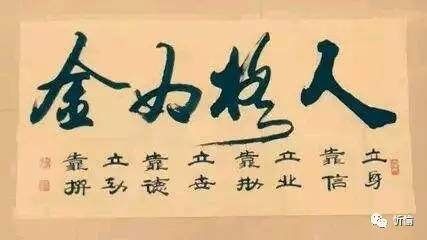 人格如金
立身
靠信
立业
靠勤
立世
靠德
立功
靠拼
忻信